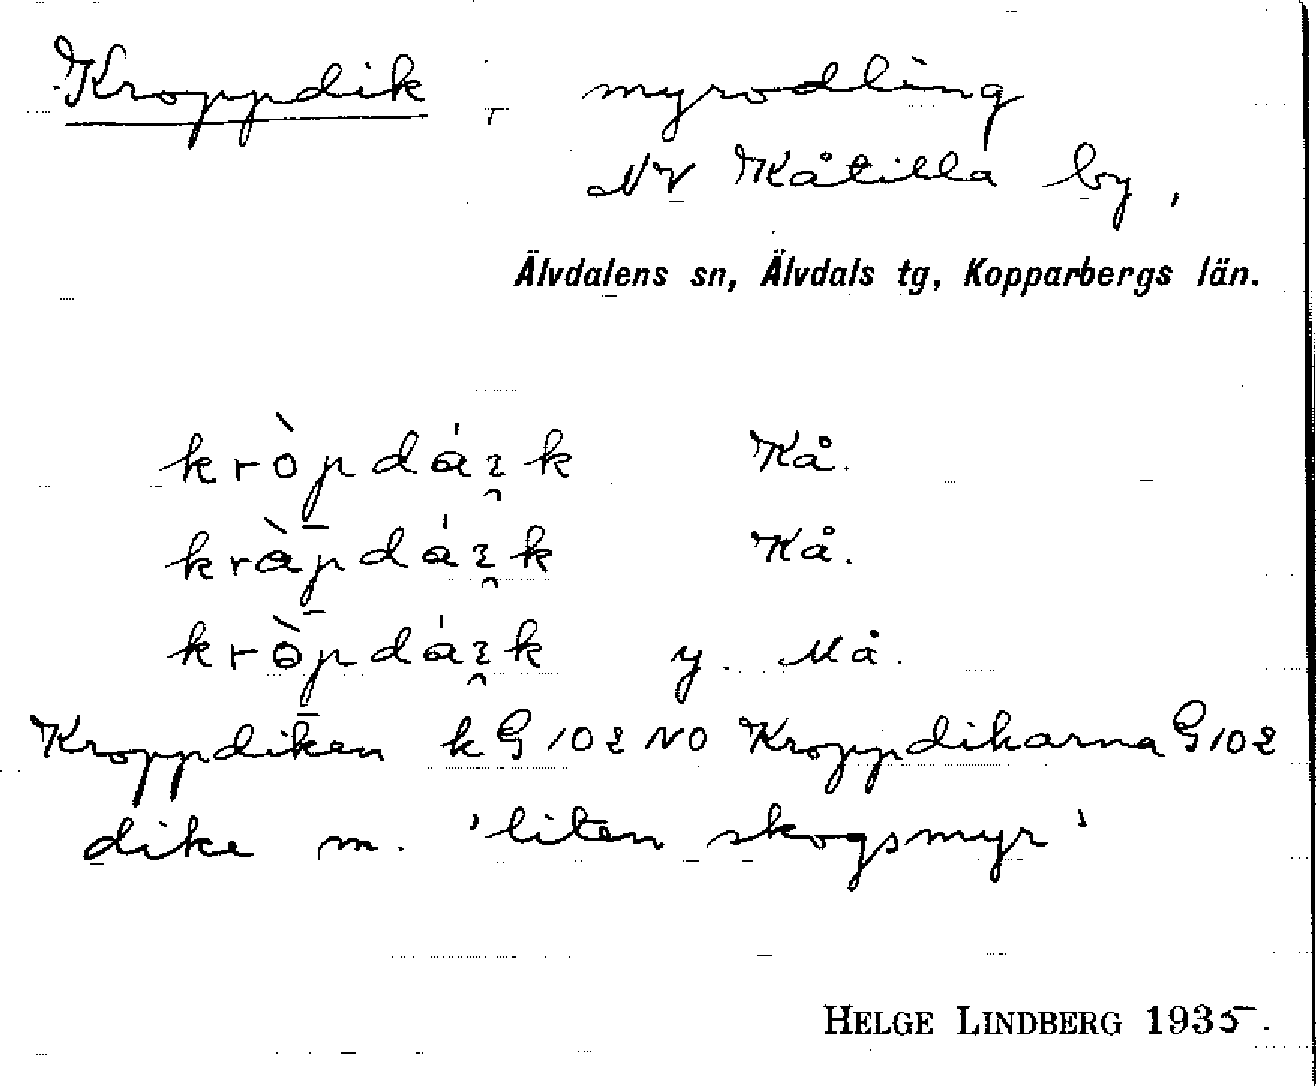 Kroppdik - myrodling
NV Kåtilla by,
Älvdalens sn, Älvdals tg, Kopparbergs län.
kròpdáık Kå.
kràpdáık Kå.
kròpdáık y. Må.
Kroppdiken k G 102 NO Kroppdikarna G 102
dike m. 'liten skogsmyr'
HELGE LINDBERG 1935.